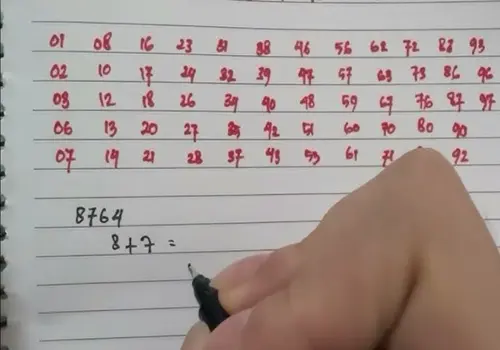 01 08 16 23 31 38 46 56 62 72 83 93
02 10 17 24 32 39 47 57 63 73 86 96
03 12 18 26 34 40 48 59 67 76 87 97
06 13 20 27 35 42 51 60 70 80 90
07 14 21 28 37 43 53 61 92
8764
8+7 =